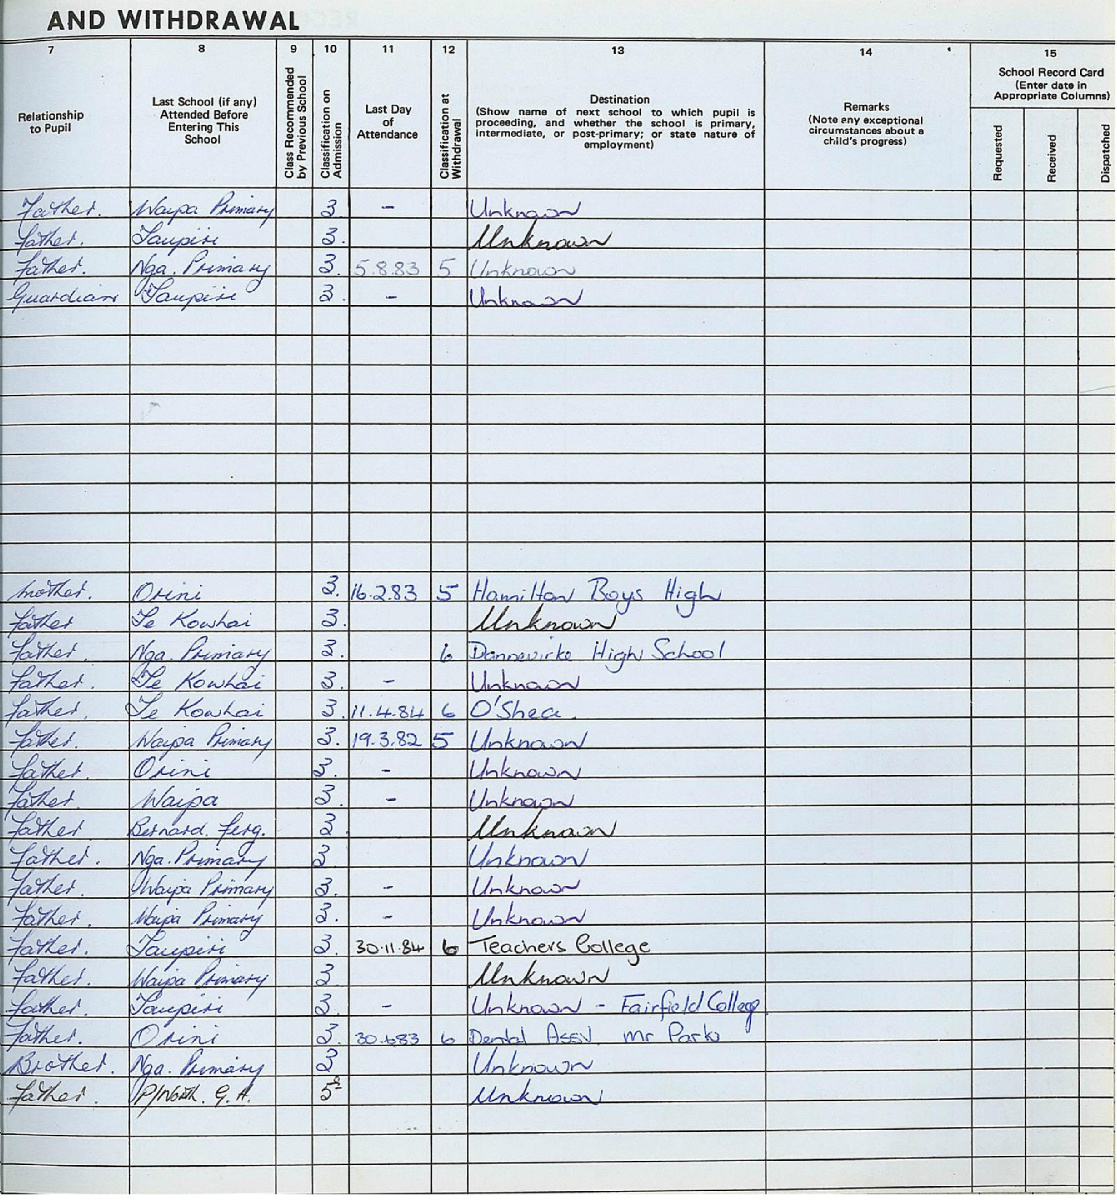 AND WITHDRAWAL
7 8 9 10 11 12 13 14 15
Relationship to Pupil
Last School (if any) Attended Before Entering This School
Class Recommended by Previous School
Classification on Admission
Last Day of Attendance
Classification at Withdrawal
Destination
(Show name of next school to which pupil is proceeding, and whether the school is primary, intermediate, or post-primary; or state nature of employment)
Remarks
(Note any exceptional circumstances about a child's progress)
School Record Card
(Enter date in Appropriate Columns)
Requested
Received
Dispatched
Father. Waipa Primary 3 - Unknown
Father. Taupiri 3. Unknown
Father. Nga. Primary 3. 5.8.83 5 Unknown
Guardian Taupiri 3. - Unknown
Mother. Orini 3. 16.2.83 5 Hamilton Boys High
Father Te Kowhai 3. Unknown
Father. Nga. Primary 3. 6 Dannevirke High School
Father. Te Kowhai 3. - Unknown
Father. Te Kowhai 3. 11.4.84 6 O'Shea.
Father. Waipa Primary 3. 19.3.82 5 Unknown
Father. Orini 3. - Unknown
Father. Waipa 3. - Unknown
Father Bernard. Ferg. 3 Unknown
Father. Nga. Primary 3. Unknown
Father. Waipa Primary 3. - Unknown
Father. Waipa Primary 3. - Unknown
Father. Taupiri 3. 30.11.84 6 Teachers College
Father. Waipa Primary 3 Unknown
Father. Taupiri 3. - Unknown - Fairfield College
Father. Orini 3. 6 Dental Mr
Brother. Nga. Primary 3 Unknown
Father. P/North. G.A. Unknown